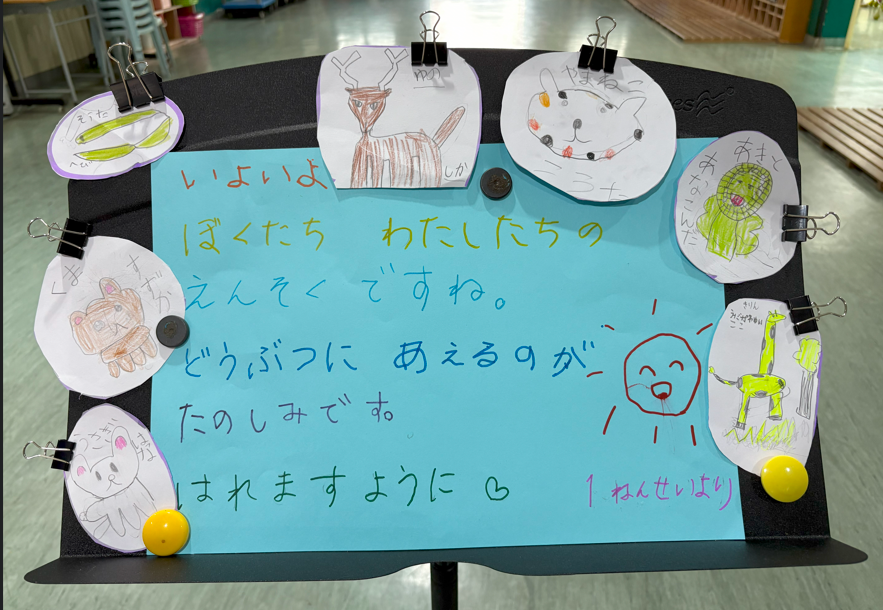 いよいよ
ぼくたち わたしたちの
えんそく ですね。
どうぶつに あえるのが
たのしみです。
はれますように♡
1ねんせいより
そうた
へび
しか
やまねこ
うた
あきと
くま
すずか
うさぎ
きりん